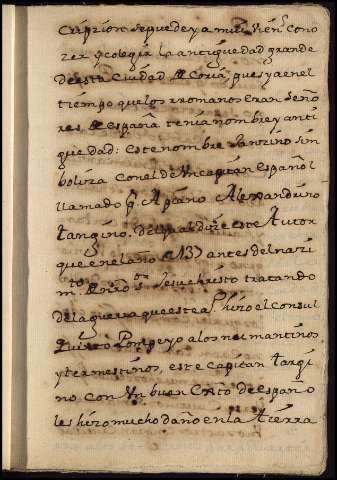 cripzion se puede ya muy vien cono
zer y colegir la antiguedad grande
de esta Ciudad de Coria, pues ya en el
tiempo que los rromanos eran Seño
res de España tenia nombre y anti
guedad: este nombre sin
boliza con el de Un capitan Español
llamado Apiano Alexandrino
tangino. del qual dize este Autor
que en el año 137 antes del nazi
mto de nro sor Jesuchristo tratando
de la guerra que este a hizo al consul
Quinto Pompeyo a los numantinos
y termestinos, este Capitan targi
no, con Un buen de españo
les hizo mucho daño en la tierra